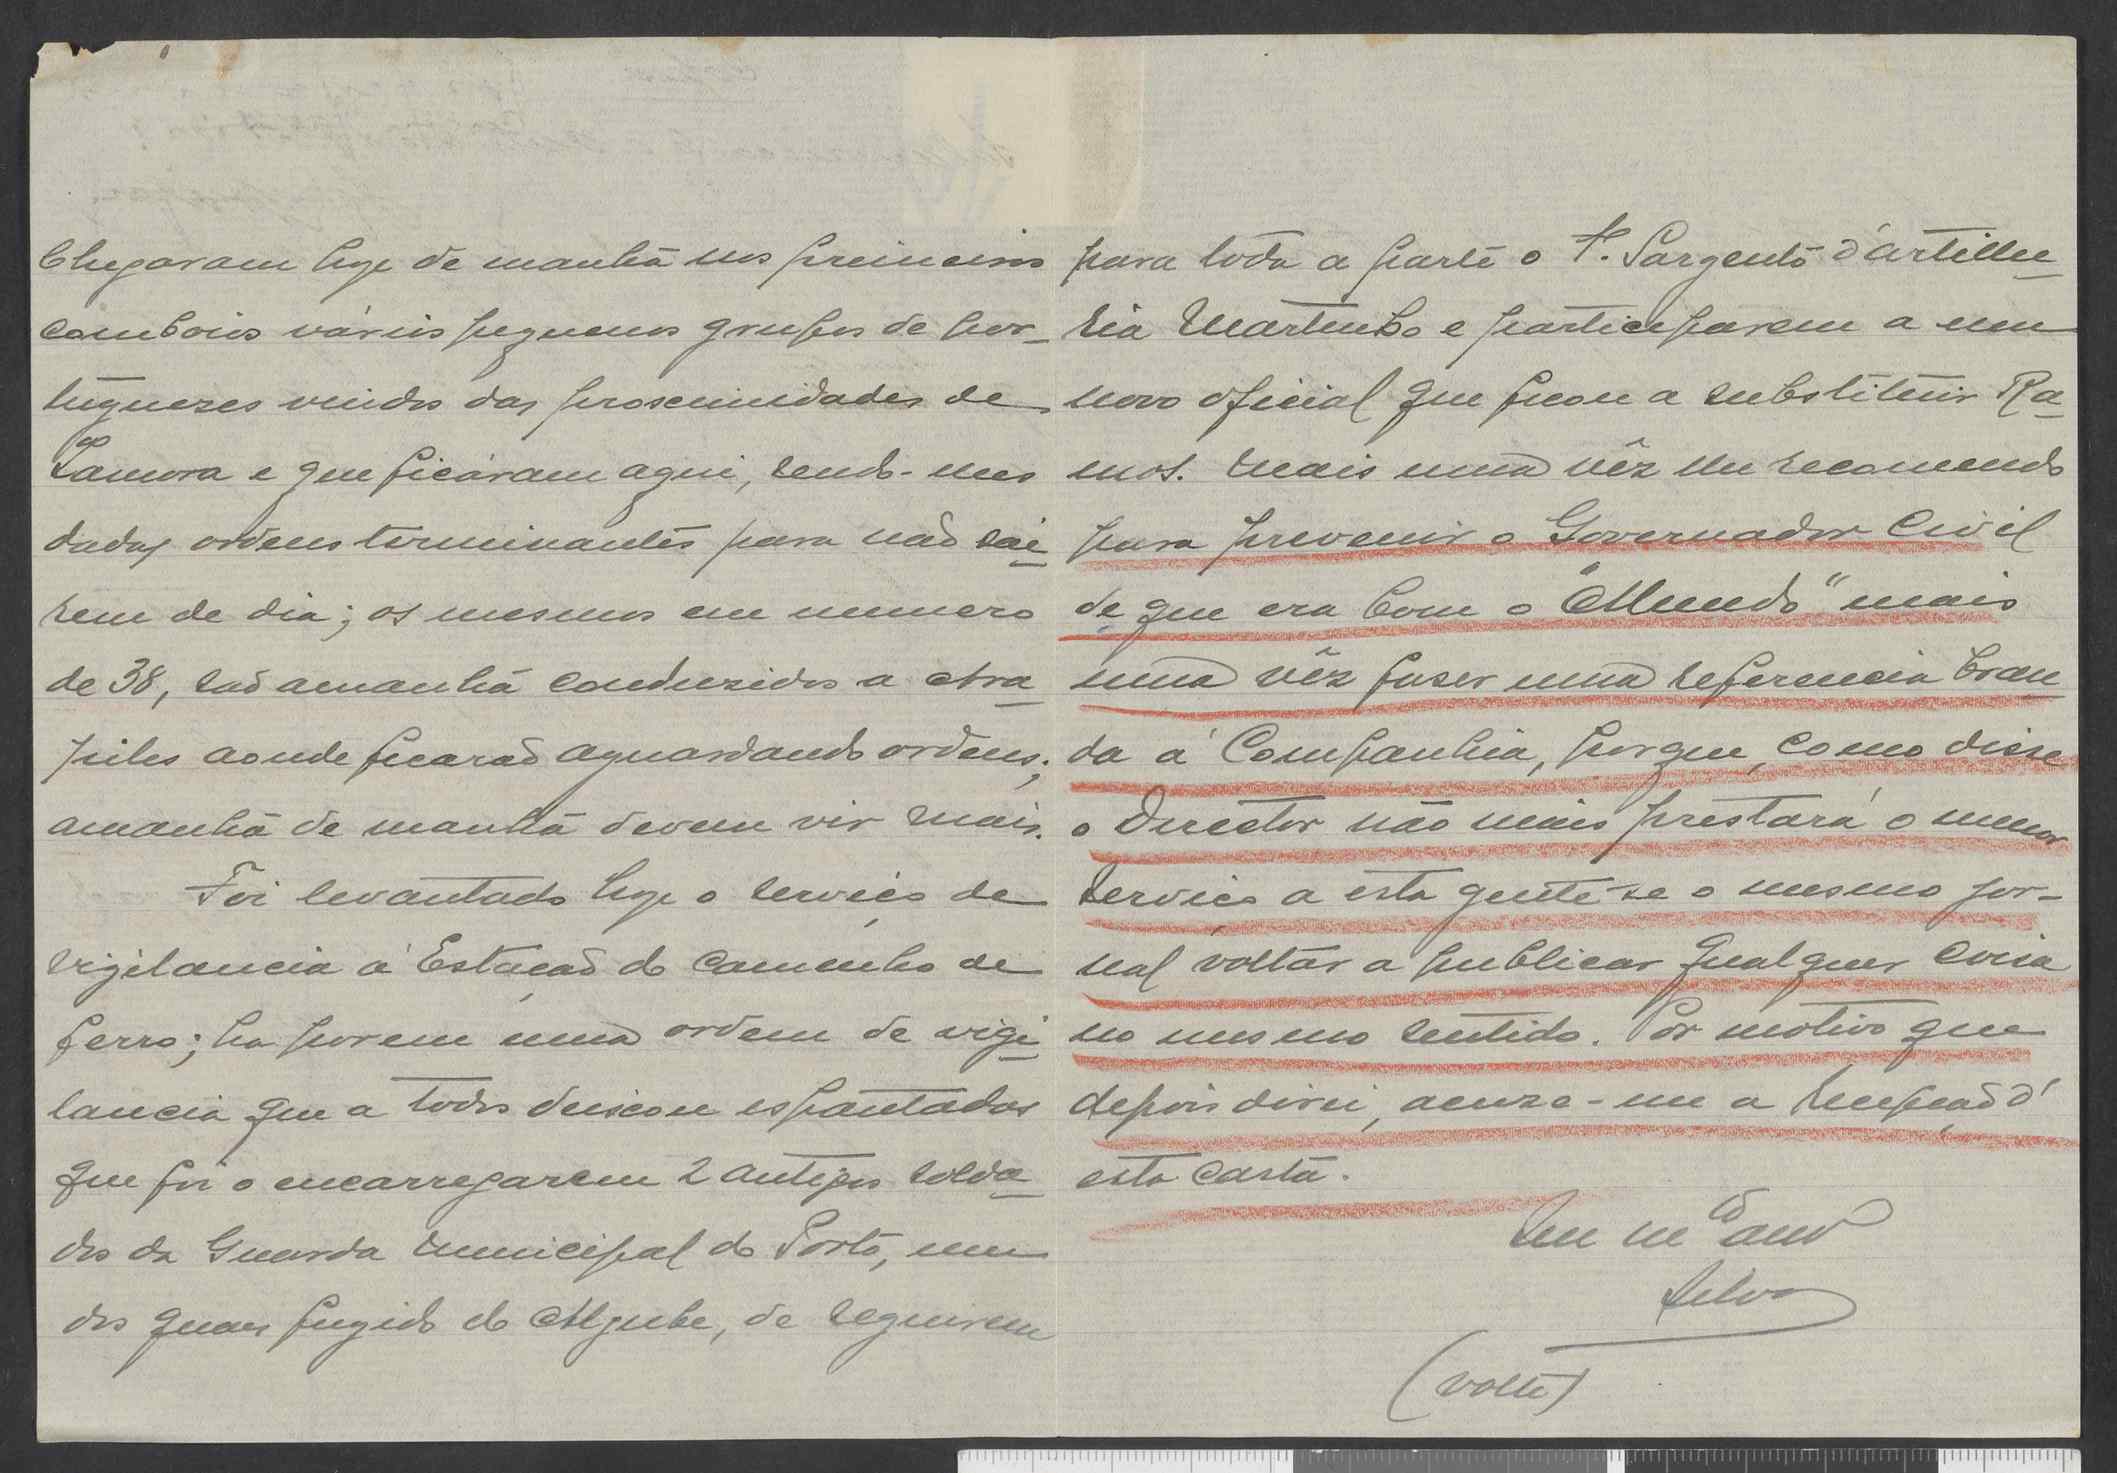 Chegaram hoje de manhã nos primeiros
comboios vários pequenos grupos de por-
tuguezes vindos das proscimidades de
Zamora e que ficáram aqui, sendo-nes
dadas ordens terminantes para não sai
rem de dia; os mesmos em numero
de 38, são amanhã conduzidos a Ara
piles aonde ficarão aguardando ordens;
amanhã de manhã devem vir mais.
Foi levantado hoje o serviço de
vigilancia á Estação do caminho de
ferro; ha porem uma ordem de vigi
lancia que a todos deiscou espantados
que foi o encarregarem 2 antigos solda
dos da Guarda Municipal do Porto, um
dos quaes fugido do Aljube, de seguirem
para toda a parte o 1º. Sargento d'Artilhe
ria Martinho e participarem a um
novo oficial que ficou a substituir Ra
mos. Mais uma vêz me recomendo
para prevenir o Governador Civil
de que era bom o "Mundo" mais
uma vêz faser uma referencia bran
da á Companhia, porque, como disse
o Director não mais prestará o menor
serviço a esta gente se o mesmo jor-
nal voltar a publicar qualquer coisa
no mesmo sentido. Por motivo que
depois direi, acuze-me a recepção d'
esta carta.
Silva
(volte)